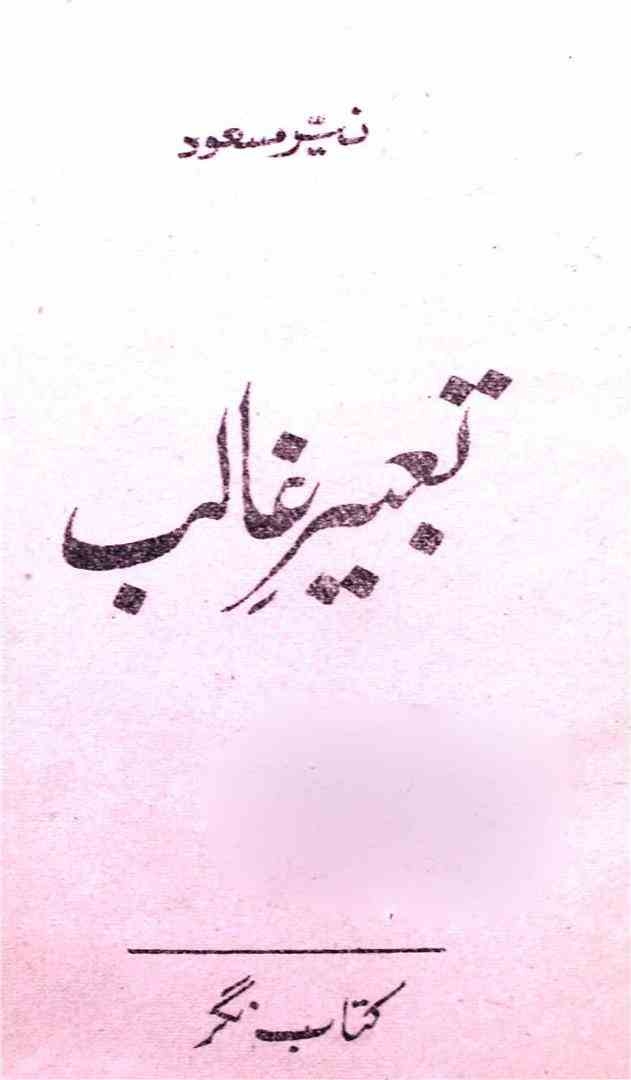 نیّر مسعود
تعبیرِ غالب
کتاب نگر